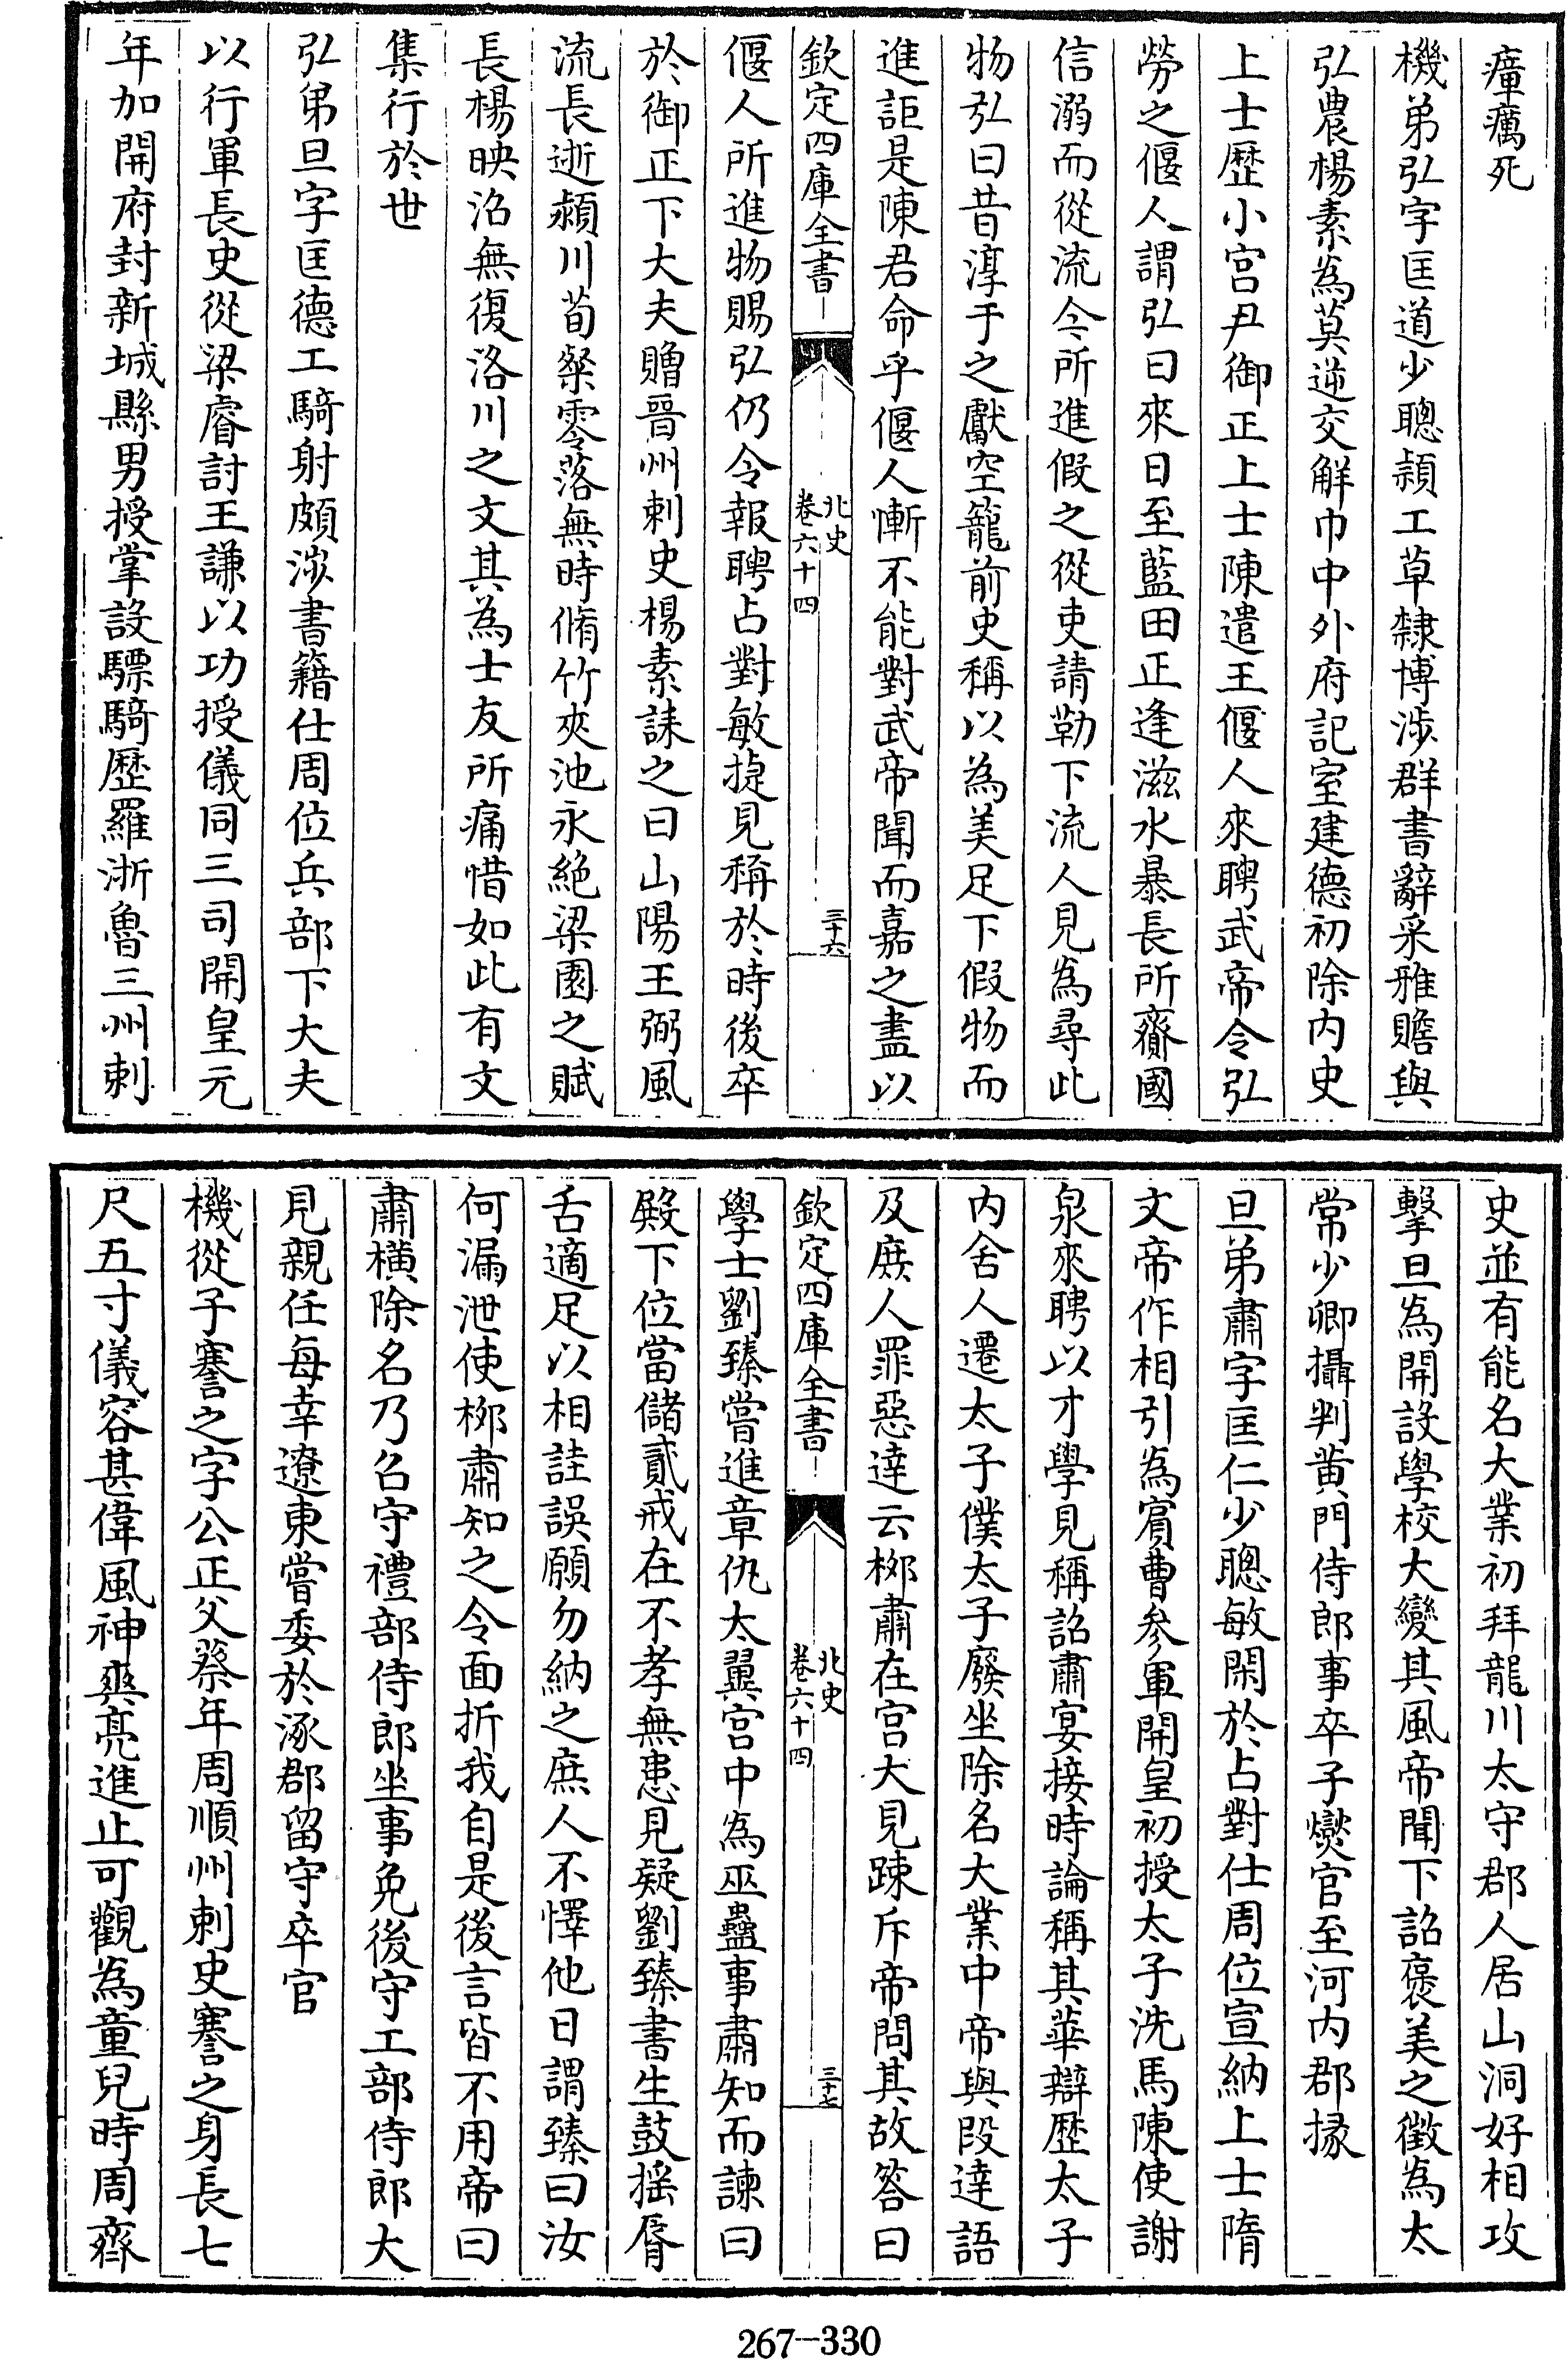 瘴癘死
機弟弘字匡道少聰頴工草隸博涉群書辭采雅贍與
弘農楊素為莫逆交解巾中外府記室建德初除内史
上士歷小宫尹御正上士陳遣王偃人來聘武帝令弘
勞之偃人謂弘曰來日至藍田正逢滋水暴長所齎國
信溺而從流今所進假之從吏請勒下流人見為尋此
物弘曰昔淳于之獻空籠前史稱以為美足下假物而
進詎是陳君命乎偃人慚不能對武帝聞而嘉之盡以
欽定四庫全書
北史
卷六十四
三十六
偃人所進物賜弘仍令報聘占對敏捷見稱於時後卒
於御正下大夫贈晉州刺史楊素誄之曰山陽王弼風
流長逝潁川荀粲零落無時脩竹夾池永絶梁園之賦
長楊映沼無復洛川之文其為士友所痛惜如此有文
集行於世
弘弟旦字匡德工騎射頗涉書籍仕周位兵部下大夫
以行軍長史從梁睿討王謙以功授儀同三司開皇元
年加開府封新城縣男授掌設驃騎歷羅浙魯三州刺
史並有能名大業初拜龍川太守郡人居山洞好相攻
擊旦為開設學校大變其風帝聞下詔褒美之徵為太
常少卿攝判黄門侍郎事卒子爕官至河内郡掾
旦弟肅字匡仁少聰敏閑於占對仕周位宣納上士隋
文帝作相引為賓曹參軍開皇初授太子洗馬陳使謝
泉來聘以才學見稱詔肅宴接時論稱其華辯歷太子
内舍人遷太子僕太子廢坐除名大業中帝與段達語
及庶人罪惡達云桞肅在宫大見踈斥帝問其故答曰
欽定四庫全書
北史
卷六十四
三十七
學士劉臻嘗進章仇太翼宫中為巫蠱事肅知而諫曰
殿下位當儲貳戒在不孝無患見疑劉臻書生鼓揺脣
舌適足以相詿誤願勿納之庶人不懌他日謂臻曰汝
何漏泄使桞肅知之令面折我自是後言皆不用帝曰
肅横除名乃召守禮部侍郎坐事免後守工部侍郎大
見親任每幸遼東嘗委於涿郡留守卒官
機從子謇之字公正父蔡年周順州刺史謇之身長七
尺五寸儀容甚偉風神爽亮進止可觀為童兒時周齊
267-330